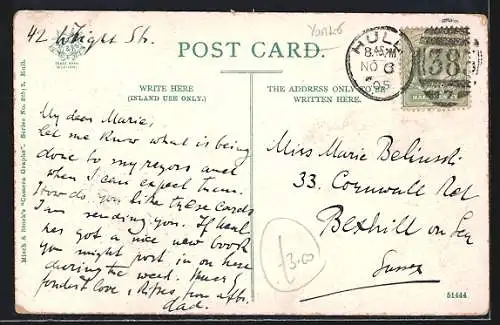 42 Wright Str.
Yorks
POST CARD.
HULL
8.45PM
NO 6
05
383
WRITE HERE
(INLAND USE ONLY.)
THE ADDRESS ONLY TO BE
WRITTEN HERE.
My dear Marie,
Let me know what is being
done to my razors and
when I can expect them.
How do you like these cards
I am sending you. If
has got a nice new book
you might post it on here
during the week. Much
fondest love, & kisses from
dad.
Miss Marie
33. Cornwall Rd
Bexhill on Sea
Sussex
£3.00
51444